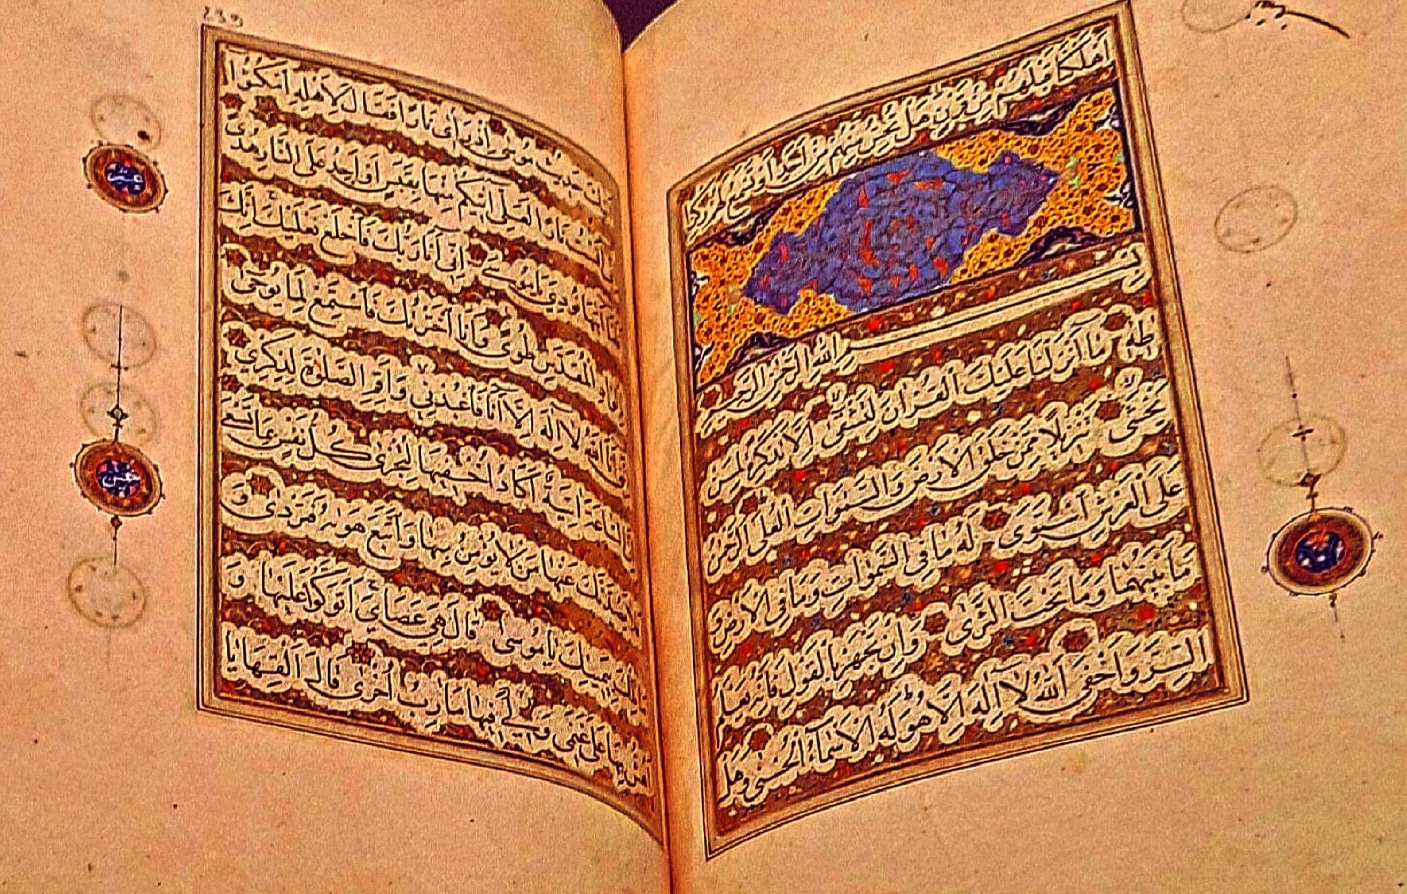 أَهْلَكْنَا قَبْلَهُمْ مِنْ قَرْنٍ هَلْ تُحِسُّ مِنْهُمْ مِنْ أَحَدٍ أَوْ تَسْمَعُ لَهُمْ رِكْزًا
بِسْمِ اللَّهِ الرَّحْمَنِ الرَّحِيمِ
طه مَا أَنْزَلْنَا عَلَيْكَ الْقُرْآنَ لِتَشْقَى إِلَّا تَذْكِرَةً لِمَنْ
يَخْشَى تَنْزِيلًا مِمَّنْ خَلَقَ الْأَرْضَ وَالسَّمَوَاتِ الْعُلَى الرَّحْمَنُ
عَلَى الْعَرْشِ اسْتَوَى لَهُ مَا فِي السَّمَوَاتِ وَمَا فِي الْأَرْضِ وَ
مَا بَيْنَهُمَا وَمَا تَحْتَ الثَّرَى وَإِنْ تَجْهَرْ بِالْقَوْلِ فَإِنَّهُ يَعْلَمُ
السِّرَّ وَأَخْفَى اللَّهُ لَا إِلَهَ إِلَّا هُوَ لَهُ الْأَسْمَاءُ الْحُسْنَى وَهَلْ
أَتَاكَ حَدِيثُ مُوسَى إِذْ رَأَى نَارًا فَقَالَ لِأَهْلِهِ امْكُثُوا
إِنِّي آنَسْتُ نَارًا لَعَلِّي آتِيكُمْ مِنْهَا بِقَبَسٍ أَوْ أَجِدُ عَلَى النَّارِ هُدًى
فَلَمَّا أَتَاهَا نُودِيَ يَا مُوسَى إِنِّي أَنَا رَبُّكَ فَاخْلَعْ نَعْلَيْكَ إِنَّكَ
بِالْوَادِ الْمُقَدَّسِ طُوًى وَأَنَا اخْتَرْتُكَ فَاسْتَمِعْ لِمَا يُوحَى
إِنَّنِي أَنَا اللَّهُ لَا إِلَهَ إِلَّا أَنَا فَاعْبُدْنِي وَأَقِمِ الصَّلَوةَ لِذِكْرِي
إِنَّ السَّاعَةَ آتِيَةٌ أَكَادُ أُخْفِيهَا لِتُجْزَى كُلُّ نَفْسٍ بِمَا تَسْعَى
فَلَا يَصُدَّنَّكَ عَنْهَا مَنْ لَا يُؤْمِنُ بِهَا وَاتَّبَعَ هَوَيهُ فَتَرْدَى وَ
مَا تِلْكَ بِيَمِينِكَ يَا مُوسَى قَالَ هِيَ عَصَايَ أَتَوَكَّؤُا عَلَيْهَا وَ
أَهُشُّ بِهَا عَلَى غَنَمِي وَلِيَ فِيهَا مَآرِبُ أُخْرَى قَالَ أَلْقِهَا يَا